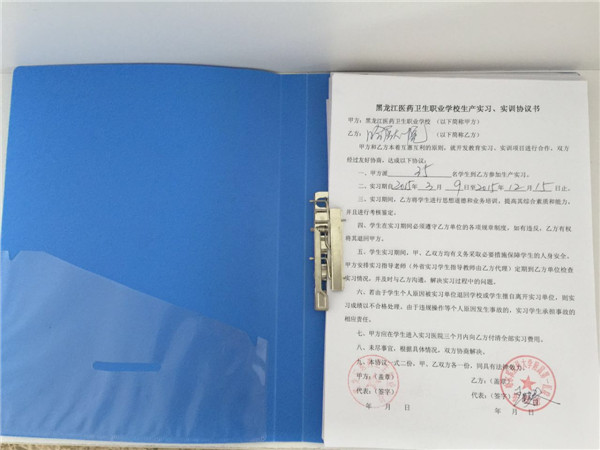 黑龙江医药卫生职业学校生产实习、实训协议书
甲方：黑龙江医药卫生职业学校 （以下简称甲方）
乙方： （以下简称乙方）
甲方和乙方本着互惠互利的原则，就开发教育实习、实训项目进行合作，双方
经过友好协商，达成以下协议：
一、甲方派 25 名学生到乙方参加生产实习。
二、实习期从2015年3月9日至2015年12月15日止。
三、实习期间，乙方将学生进行思想道德和业务培训，提高其综合素质和能力，
并且进行考核鉴定。
四、学生在实习期间必须遵守乙方单位的各项规章制度，如有违反，乙方有权
将其退回甲方。
五、学生实习期间，甲、乙双方均有义务采取必要措施保障学生的人身安全。
甲方安排实习指导老师（外省实习学生指导教师由乙方代理）定期到乙方单位检查
实习情况，并及时与乙方沟通，解决实习过程中的问题。
六、若由于学生个人原因被实习单位退回学校或学生擅自离开实习单位，则实
习成绩以不合格处理。由于违规操作等个人原因发生事故的，实习学生承担事故的
相应责任。
七、甲方应在学生进入实习医院三个月内向乙方付清全部实习费用。
八、未尽事宜，根据具体情况，双方协商解决。
九、本协议一式二份，甲、乙双方各一份，同具有法律效力。
甲方：（盖章） 乙方：（盖章）
代表：（签字） 代表：（签字）
年 月 日 年 月 日